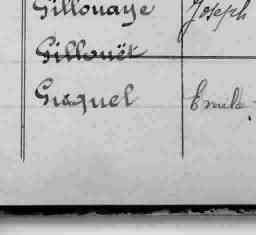 Gillouaye Joseph
Gillouët
Guquel Emile